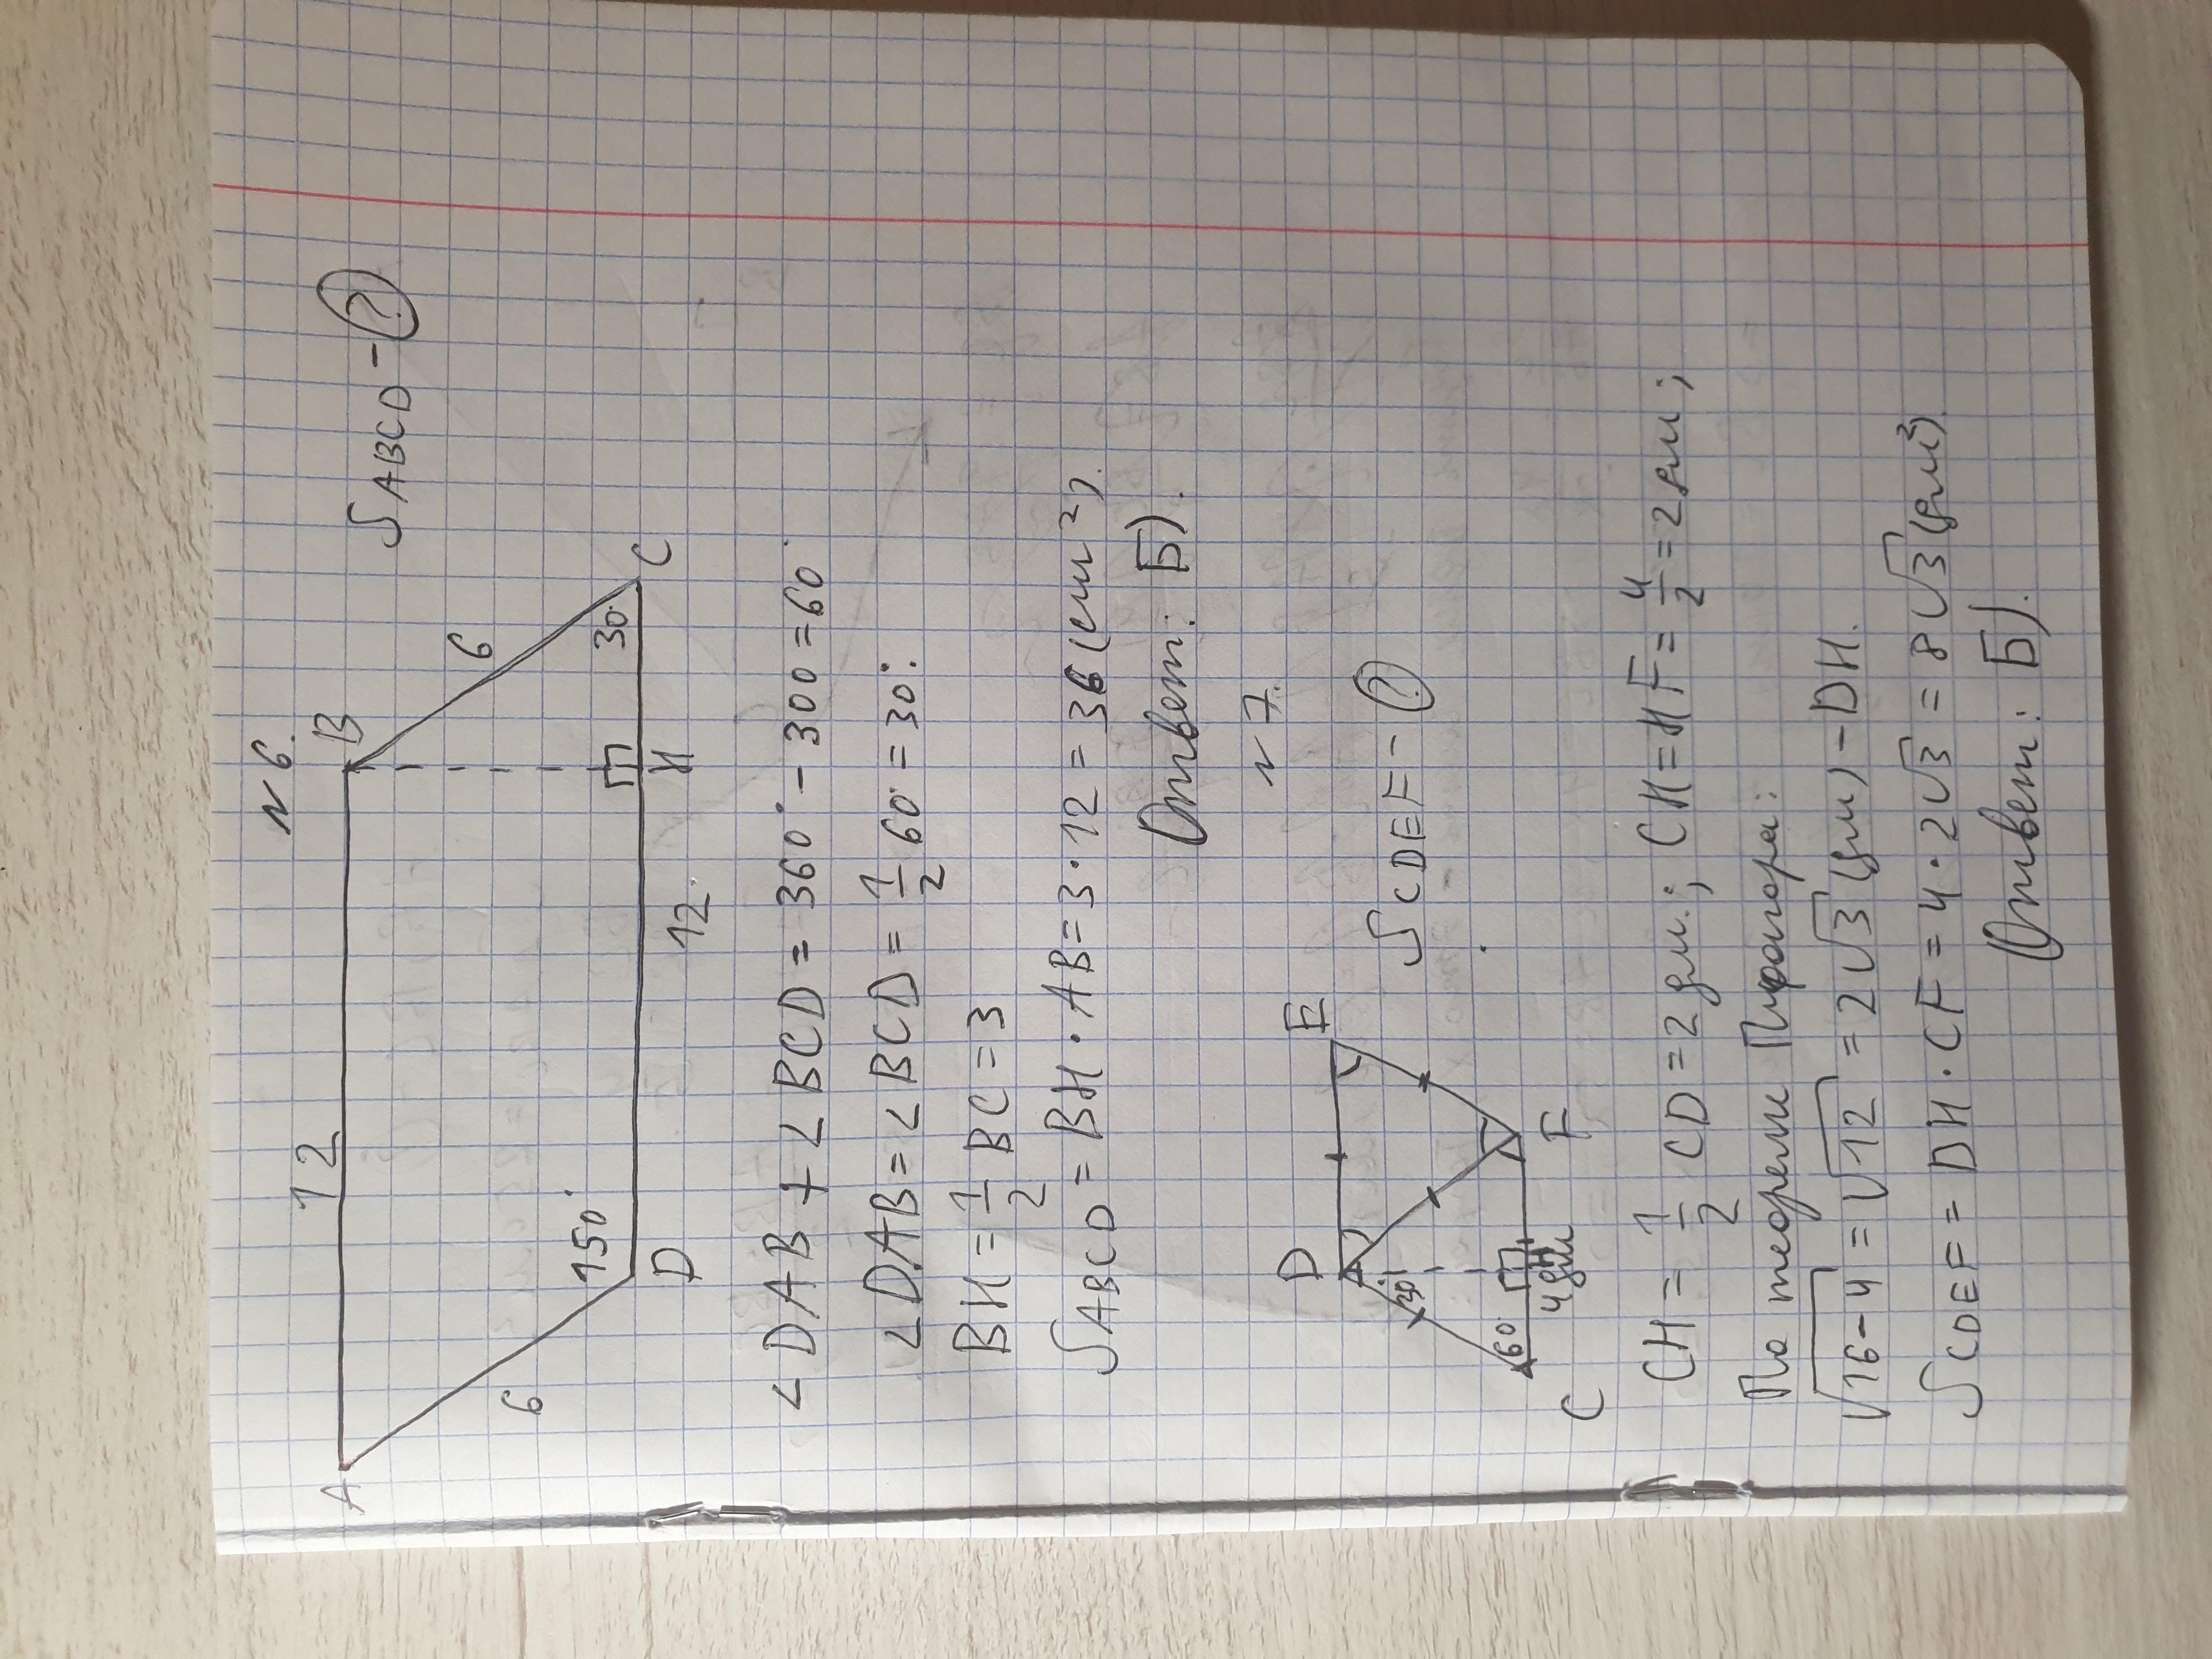 N 6.
12
A
B
S ABCD - ?
6
6
150°
30°
D
H
C
12.
∠DAB + ∠BCD = 360° - 300 = 60°
∠DAB = ∠BCD = 1/2 60° = 30°.
BH = 1/2 BC = 3
S ABCD = BH · AB = 3 · 12 = 36 (см²).
Ответ: Б).
N 7.
D
E
S CDEF - ?
30°
60°
C
H
F
4дм
CH = 1/2 CD = 2 дм.; CH = HF = 4/2 = 2 дм;
По теореме Пифагора:
√16-4 = √12 = 2√3 (дм) - DH.
S CDEF = DH · CF = 4 · 2√3 = 8√3 (дм²).
Ответ: Б).